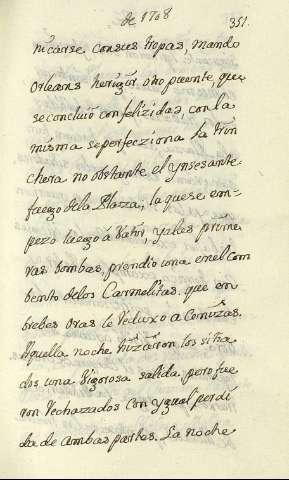 de 1708
351.
nicarse consus tropas, mando
Orleans herigir otro puente, que
seconcluiò con felizidad, con la
misma seperfecziona la trin
chera no obstante el ynsesante
fuego dela Plaza, la que se em-
pezo luego â batir, y alas prime
ras bombas, prendio una en el com
bento delos Carmelitas. que em
brebes oras le reduxo a Cenizas.
Aquella noche hizieron los sitia
dos una Vigorosa salida. pero fue
ron rechazados con ygual perdi
da de ambas partes. La noche